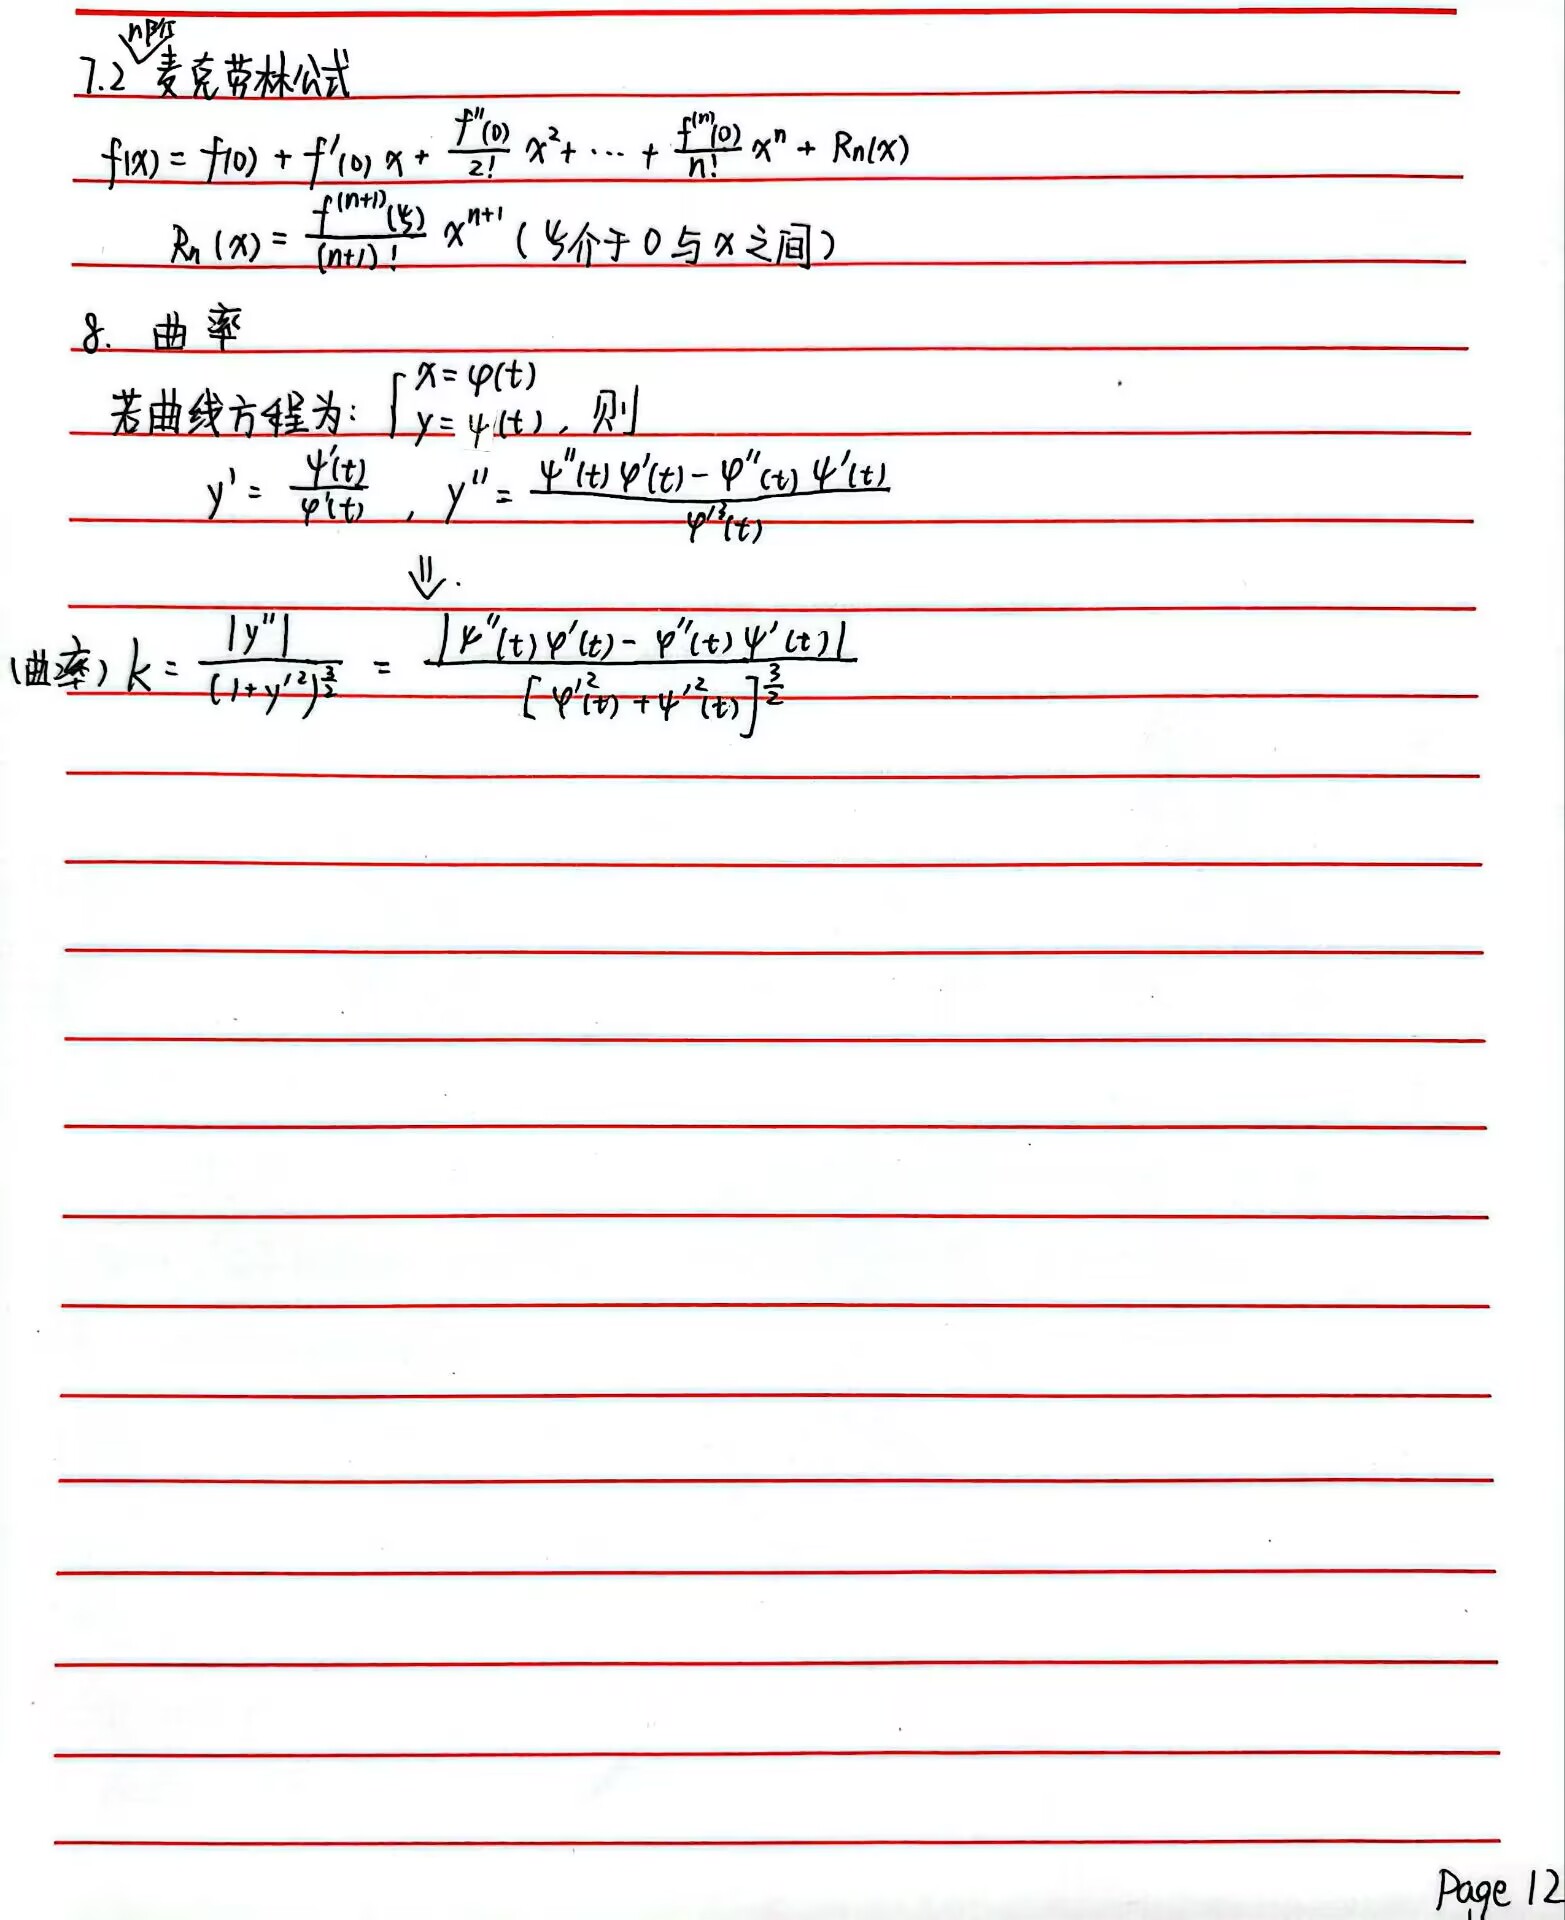 7.2 n阶麦克劳林公式
f(x) = f(0) + f'(0) x + \frac{f''(0)}{2!} x^2 + ⋯ + \frac{f^{(n)}(0)}{n!} x^n + Rn(x)
Rn(x) = \frac{f^{(n+1)}(ξ)}{(n+1)!} x^{n+1} (ξ介于0与x之间)
8. 曲率
若曲线方程为: { x = φ(t)
y = ψ(t), 则
y' = \frac{ψ'(t)}{φ'(t)}, y'' = \frac{ψ''(t) φ'(t) - φ''(t) ψ'(t)}{φ'^3(t)}
⇓.
(曲率) k = \frac{|y''|}{(1+y'^2)^{\frac{3}{2}}} = \frac{|ψ''(t) φ'(t) - φ''(t) ψ'(t)|}{[φ'^2(t) + ψ'^2(t)]^{\frac{3}{2}}}
Page 12